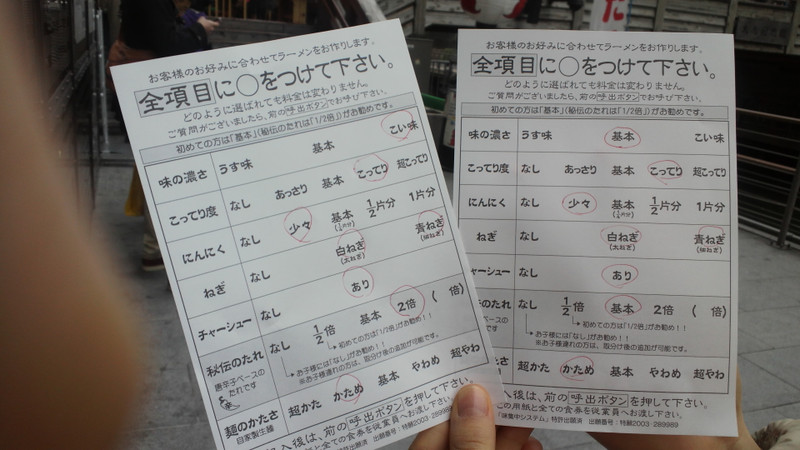 お客様のお好みに合わせてラーメンをお作りします。
全項目に○をつけて下さい。
どのように選ばれても料金は変わりません。
ご質問がございましたら、前の呼出ボタンでお呼び下さい。
初めての方は「基本」(秘伝のたれは「1/2倍」)がお勧めです。
味の濃さ うす味 基本 こい味
こってり度 なし あっさり 基本 こってり 超こってり
にんにく なし 少々 基本 1/2片分 1片分
(1/4片分)
ねぎ なし 白ねぎ 青ねぎ
(太ねぎ) (細ねぎ)
チャーシュー なし あり
秘伝のたれ なし 1/2倍 基本 2倍 ( 倍)
唐辛子ベースの
たれです
初めての方は「1/2倍」がお勧め！！
お子様には「なし」がお勧め！！
※お子様連れの方は、取分け後の追加が可能です。
麺のかたさ 超かた かため 基本 やわめ 超やわ
自家製生麺
入後は、前の呼出ボタンを押して下さい。
と全ての食券を従業員へお渡し下さい。
特許出願済 出願番号：特願2003-289989
お客様のお好みに合わせてラーメンをお作りします。
全項目に○をつけて下さい。
どのように選ばれても料金は変わりません。
ご質問がございましたら、前の呼出ボタンでお呼び下さい。
初めての方は「基本」(秘伝のたれは「1/2倍」)がお勧めです。
味の濃さ うす味 基本 こい味
こってり度 なし あっさり 基本 こってり 超こってり
にんにく なし 少々 基本 1/2片分 1片分
ねぎ なし 白ねぎ 青ねぎ
(太ねぎ) (細ねぎ)
チャーシュー なし あり
のたれ なし 1/2倍 基本 2倍 ( 倍)
ベースの
です
初めての方は「1/2倍」がお勧め！！
お子様には「なし」がお勧め！！
※お子様連れの方は、取分け後の追加が可能です。
たさ 超かた かため 基本 やわめ 超やわ
入後は、前の呼出ボタンを押して下さい。
の用紙と全ての食券を従業員へお渡し下さい。
「味集中システム」特許出願済 出願番号：特願2003-289989
た